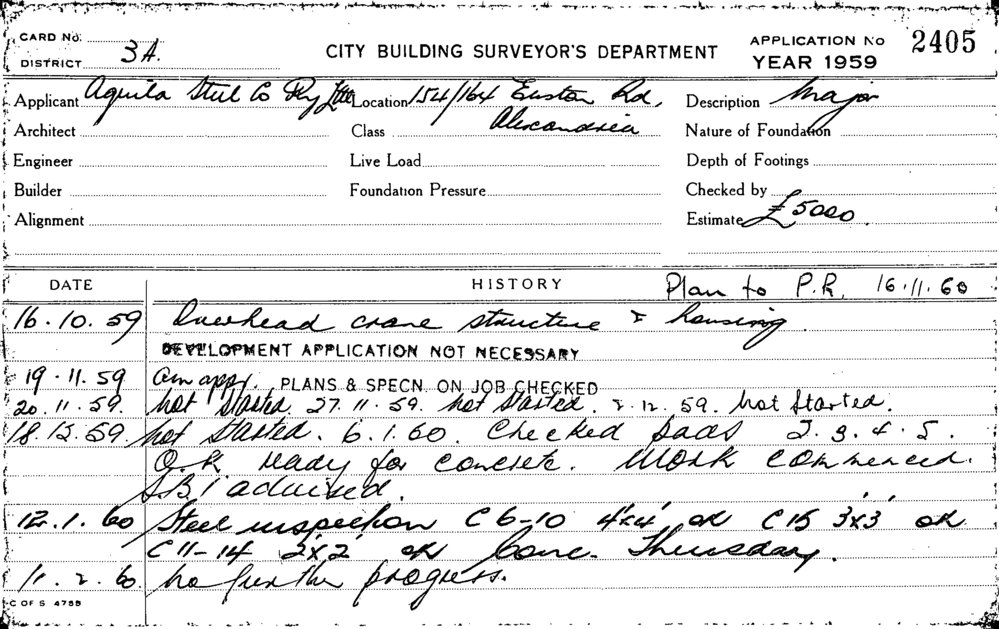 CARD No.
DISTRICT 3A.
CITY BUILDING SURVEYOR'S DEPARTMENT
APPLICATION No 2405
YEAR 1959
Applicant Aquila Steel Co Pty Ltd Location 154/164 Euston Rd, Description Major
Architect Class Alexandria Nature of Foundation
Engineer Live Load Depth of Footings
Builder Foundation Pressure Checked by
Alignment Estimate £5000.
DATE HISTORY Plan to P.R. 16.11.60
16.10.59 Overhead crane structure & housing
DEVELOPMENT APPLICATION NOT NECESSARY
19.11.59 am appr. PLANS & SPECN. ON JOB CHECKED
20.11.59. Not Started. 27.11.59. Not Started. 2.12.59. Not Started.
18.12.59. Not Started. 6.1.60. Checked pads 2.3.4.5.
O.K. ready for concrete. Work commenced.
S.B.I advised.
12.1.60 Steel inspection C6-10 4'x4' ok C15 3'x3' ok
C11-14 2'x2' ok Conc. Thursday.
11.2.60. No further progress.
C OF S 4755